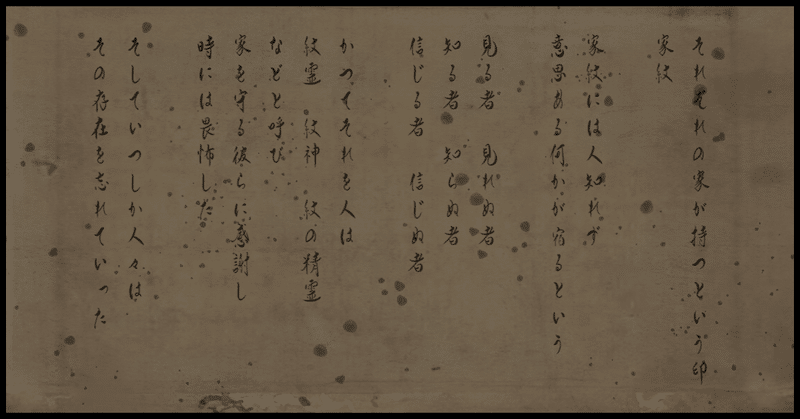 それぞれの家が持つという印
家紋
家紋には人知れず
意思ある何かが宿るという
見る者　見れぬ者
知る者　知らぬ者
信じる者　信じぬ者
かつてそれを人は
紋霊　紋神　紋の精霊
などと呼び
家を守る彼らに感謝し
時には畏怖した
そしていつしか人々は
その存在を忘れていった